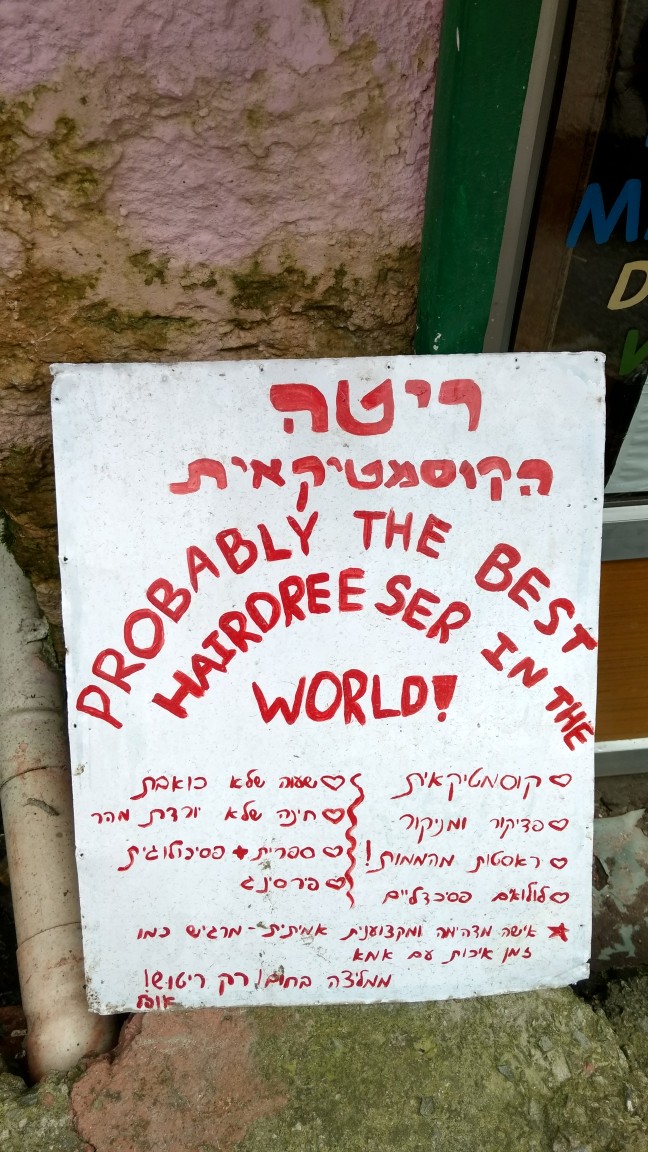 ריטה
הקוסמטיקאית
PROBABLY THE BEST
HAIRDREESER IN THE
WORLD!
♡ קוסמטיקאית
♡ פדיקור ומניקור
♡ ראסטות מהממות!
♡ פסיכדליים
♡ שעוה שלא כואבת
♡ חינה שלא יורדת מהר
♡ ספרית + פסיכולוגית
♡ פירסינג
★ אישה מדהימה ומקצוענית אמיתית - מרגיש כמו
זמן איכות עם אמא
ממליצה בחום! רק ריטוש!
MA
D